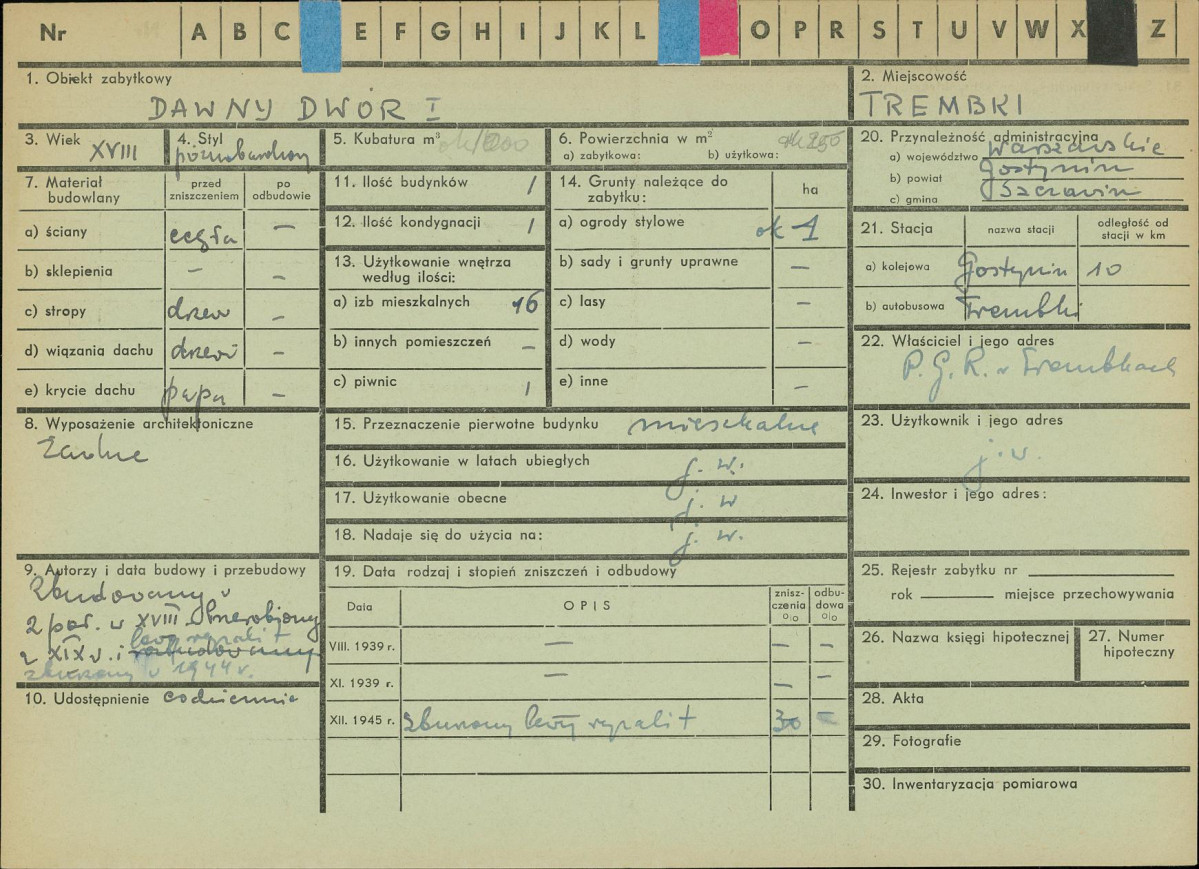 Nr A B C E F G H I J K L O P R S T U V W X Z
1. Obiekt zabytkowy
DAWNY DWÓR I
2. Miejscowość
TREMBKI
3. Wiek XVIII
4. Styl późnobarokowy
5. Kubatura m³ ok 1000
6. Powierzchnia w m² ok 250
a) zabytkowa: b) użytkowa:
7. Materiał budowlany
przed zniszczeniem
po odbudowie
a) ściany cegła —
b) sklepienia — —
c) stropy drzewo —
d) wiązania dachu drzewo —
e) krycie dachu papa —
8. Wyposażenie architektoniczne
Żadne
9. Autorzy i data budowy i przebudowy
Zbudowany w
2 poł. w XVIII. Przerobiony
w XIX w. i lewy ryzalit
zburzony w 1944 r.
10. Udostępnienie codziennie
11. Ilość budynków 1
12. Ilość kondygnacji 1
13. Użytkowanie wnętrza
według ilości:
a) izb mieszkalnych 16
b) innych pomieszczeń —
c) piwnic 1
14. Grunty należące do
zabytku:
ha
a) ogrody stylowe ok 1
b) sady i grunty uprawne —
c) lasy —
d) wody —
e) inne —
15. Przeznaczenie pierwotne budynku mieszkalne
16. Użytkowanie w latach ubiegłych j. w.
17. Użytkowanie obecne j. w
18. Nadaje się do użycia na: j. w.
19. Data rodzaj i stopień zniszczeń i odbudowy
Data OPIS znisz-czenia % odbu-dowa %
VIII. 1939 r. — — —
XI. 1939 r. — — —
XII. 1945 r. zburzony lewy ryzalit 30 —
20. Przynależność administracyjna
a) województwo Warszawskie
b) powiat Gostynin
c) gmina Szczawin
21. Stacja
nazwa stacji
odległość od stacji w km
a) kolejowa Gostynin 10
b) autobusowa Trembki
22. Właściciel i jego adres
P. G. R. w Trembkach
23. Użytkownik i jego adres
j. w.
24. Inwestor i jego adres:
25. Rejestr zabytku nr
rok miejsce przechowywania
26. Nazwa księgi hipotecznej
27. Numer hipoteczny
28. Akta
29. Fotografie
30. Inwentaryzacja pomiarowa